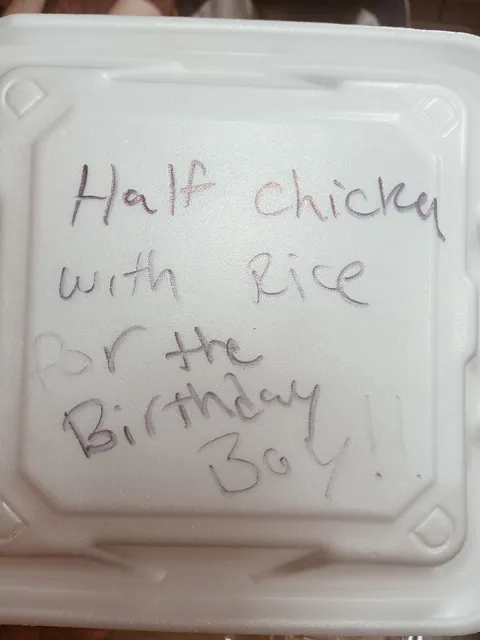 Half chicken
with Rice
for the
Birthday
Boy!!